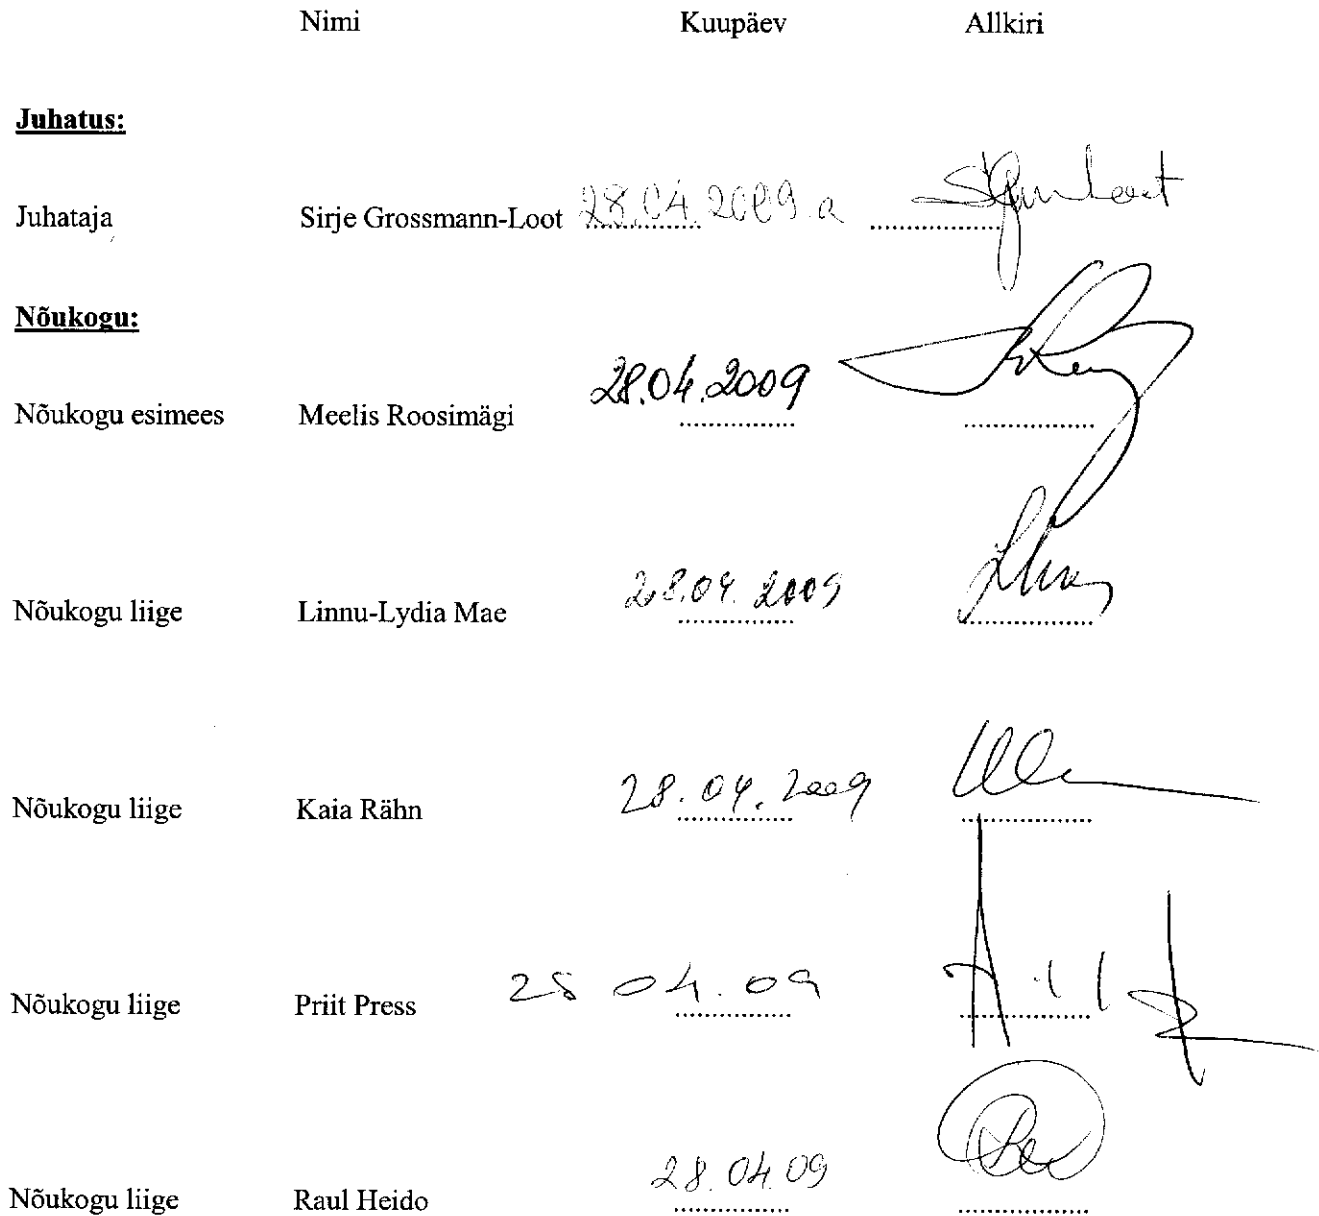 Nimi Kuupäev Allkiri
Juhatus:
Juhataja Sirje Grossmann-Loot 28.04.2009.a
Nõukogu:
Nõukogu esimees Meelis Roosimägi 28.04.2009
Nõukogu liige Linnu-Lydia Mae 28.04.2009
Nõukogu liige Kaia Rähn 28.04.2009
Nõukogu liige Priit Press 28 04.09
Nõukogu liige Raul Heido 28.04.09